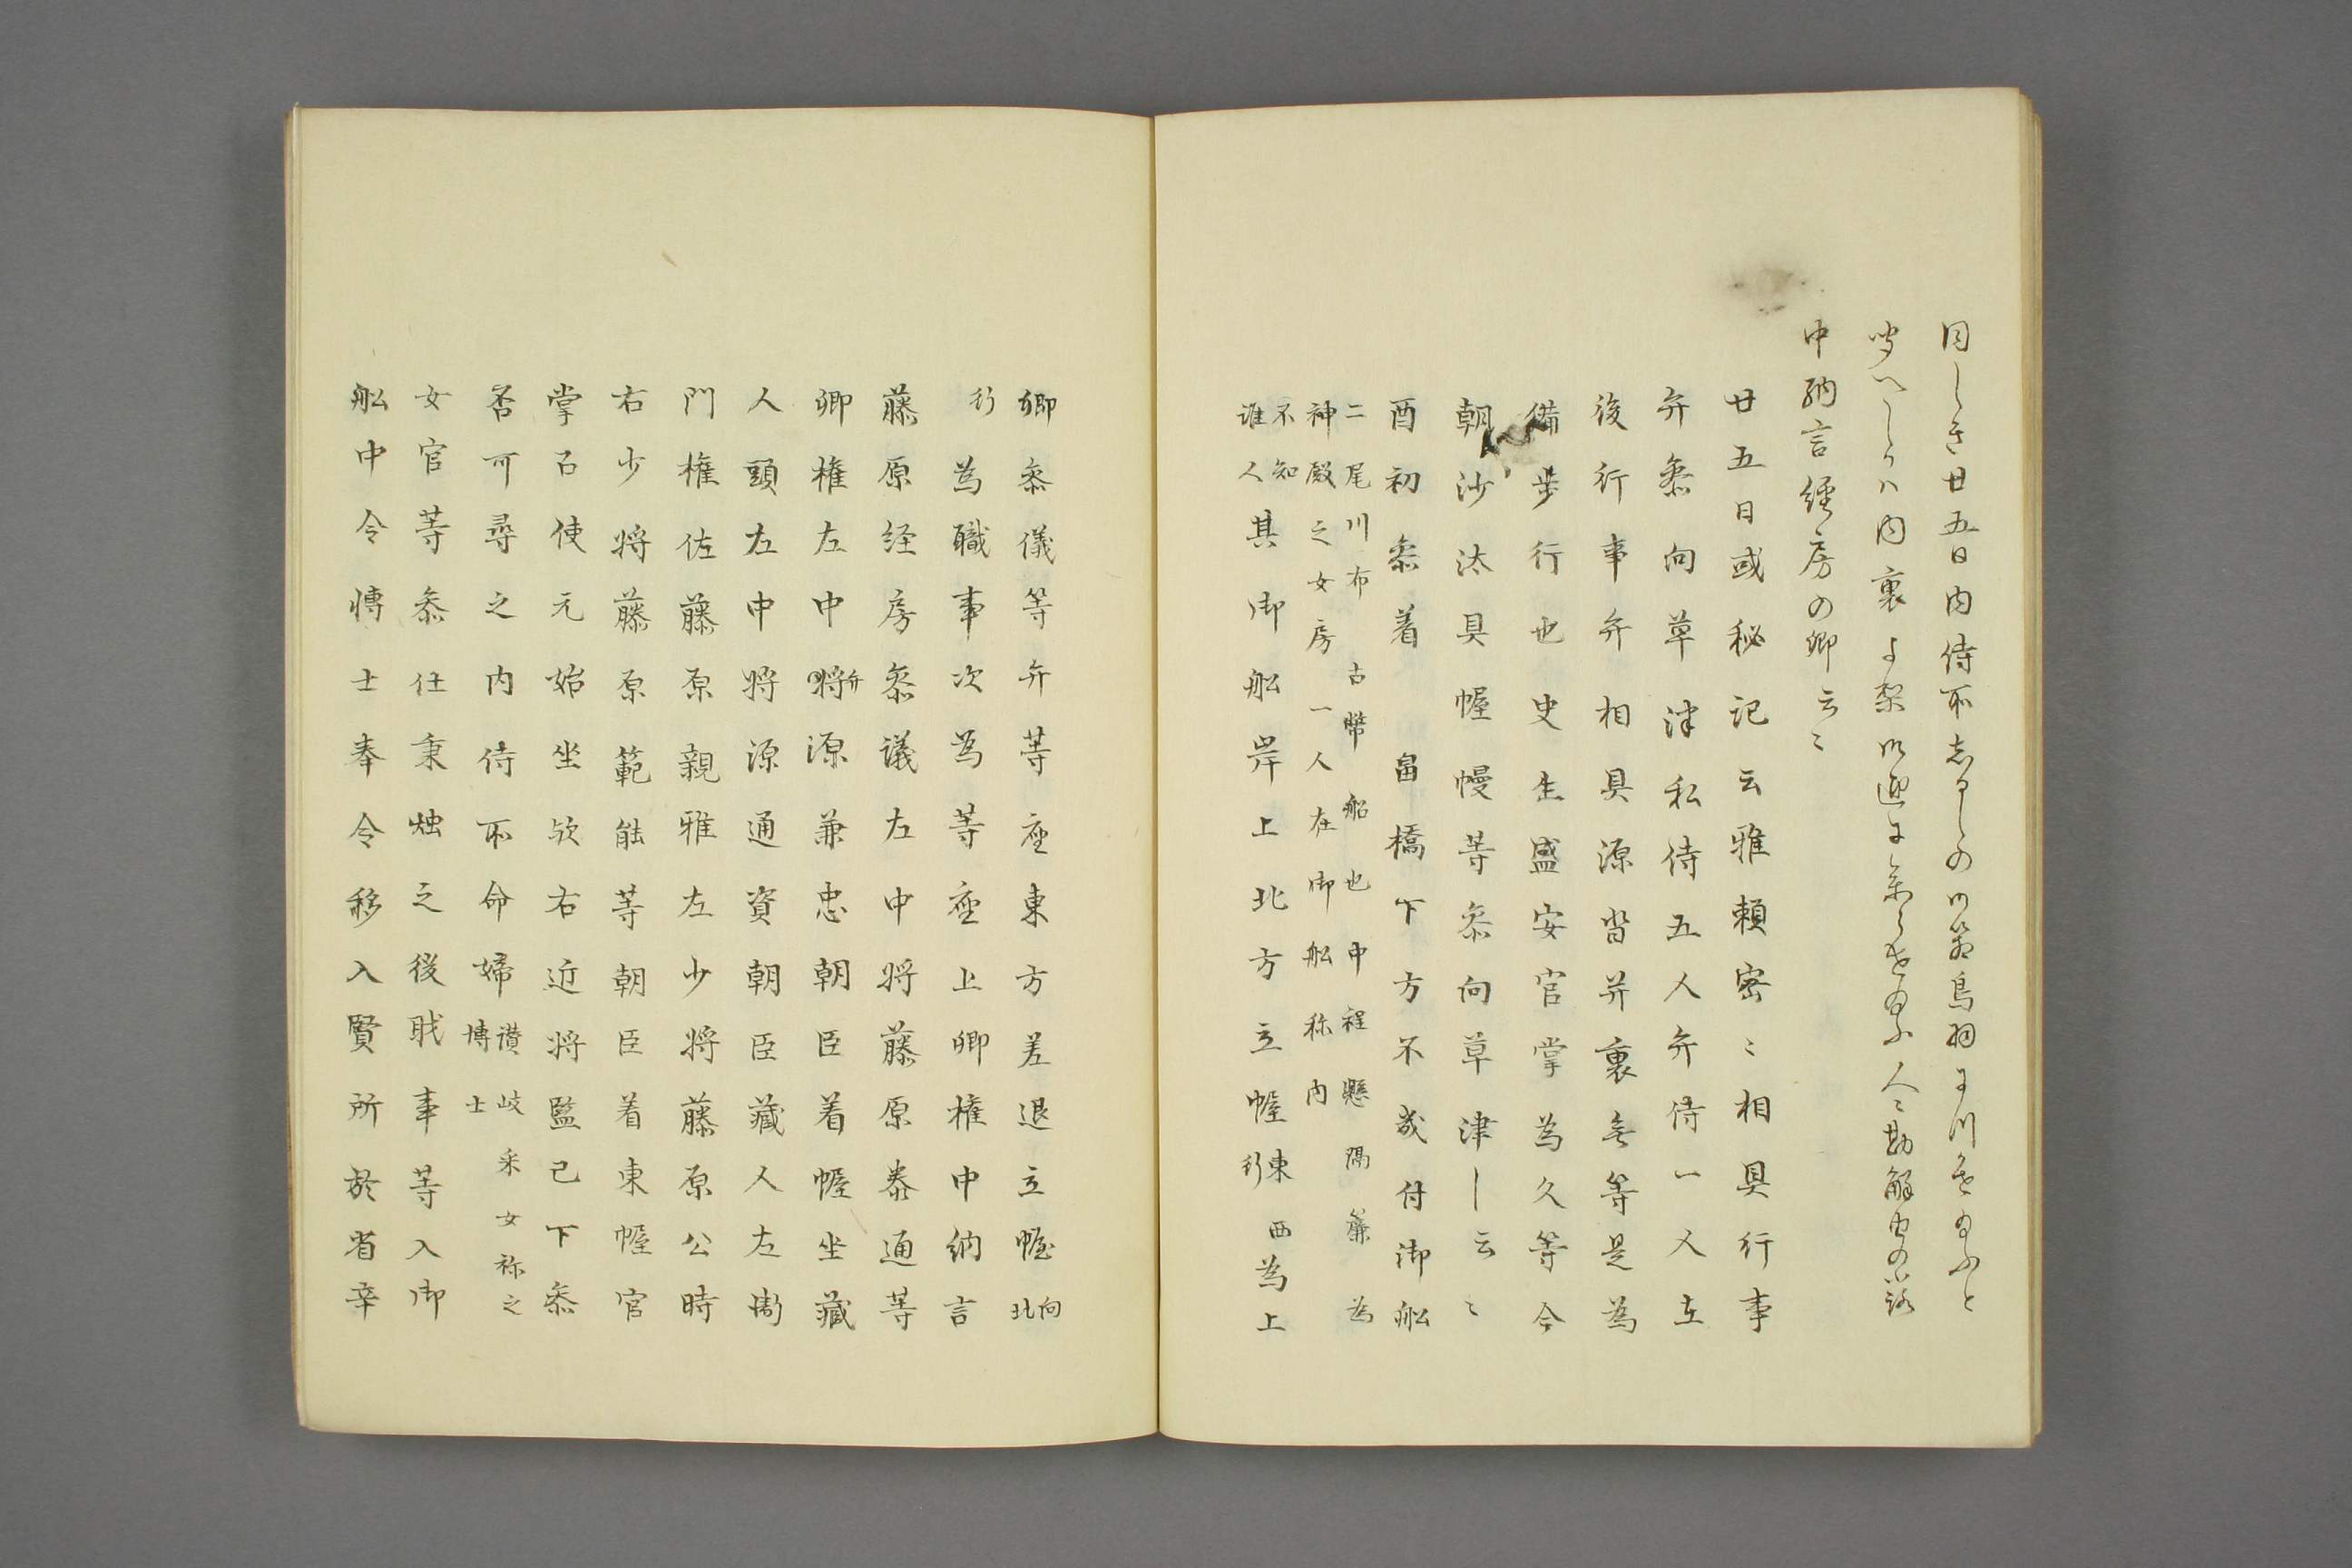 同しき廿五日内侍所志のひの御船鳥羽につきたまふと
聞へしかハ内裏より御迎に参らせたまふ人々勘解由の小路
中納言經房の卿云〻
廿五日或秘記云雅頼密〻相具行事
弁参向草津私侍五人弁侍一人左
後行事弁相具源皆并裏無等是為
備歩行也史生盛安官掌為久等令
朝沙汰具幄幔等参向草津了云〻
酉初参着畠橋下方不哉付御舩
二尾川布古幣船也中程懸隅簾為
神殿之女房一人在御舩称内
不知
誰人其御舩岸上北方立幄東西
行為上
卿参儀等弁等座東方差退立幄向北
行為職事次為等座上卿権中納言
藤原経房参議左中将藤原泰通等
卿権左中将弁源兼忠朝臣着幄坐藏
人頭左中将源通資朝臣藏人左衛
門権佐藤原親雅左少将藤原公時
右少将藤原範能等朝臣着東幄官
掌召使元始坐欤右近将監已下参
否可尋之内侍所命婦讃岐采女祢之
博士
女官等参住秉烛之後職事等入御
舩中令博士奉令移入賢所於省辛